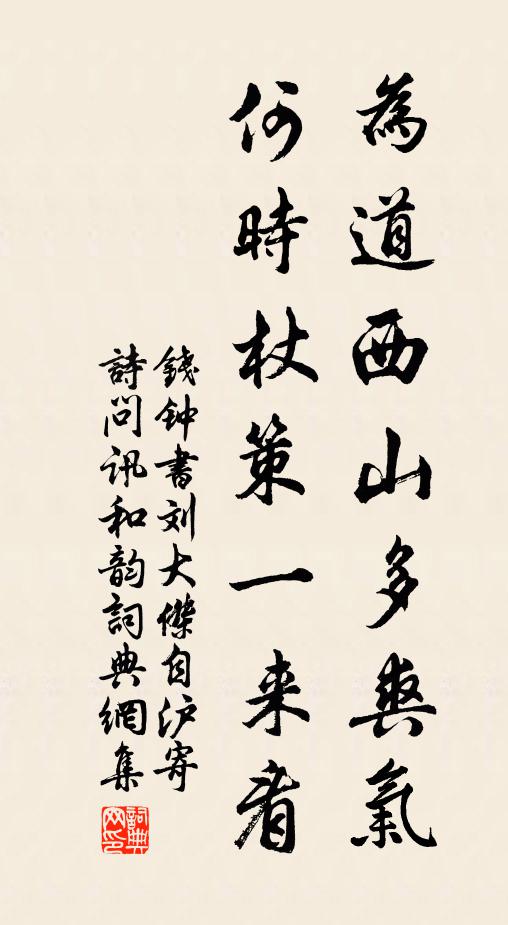 為道西山多爽氣
何時杖策一来看
錢钟書刘大傑自沪寄
詩問讯和韵詞典網集
詞典网印